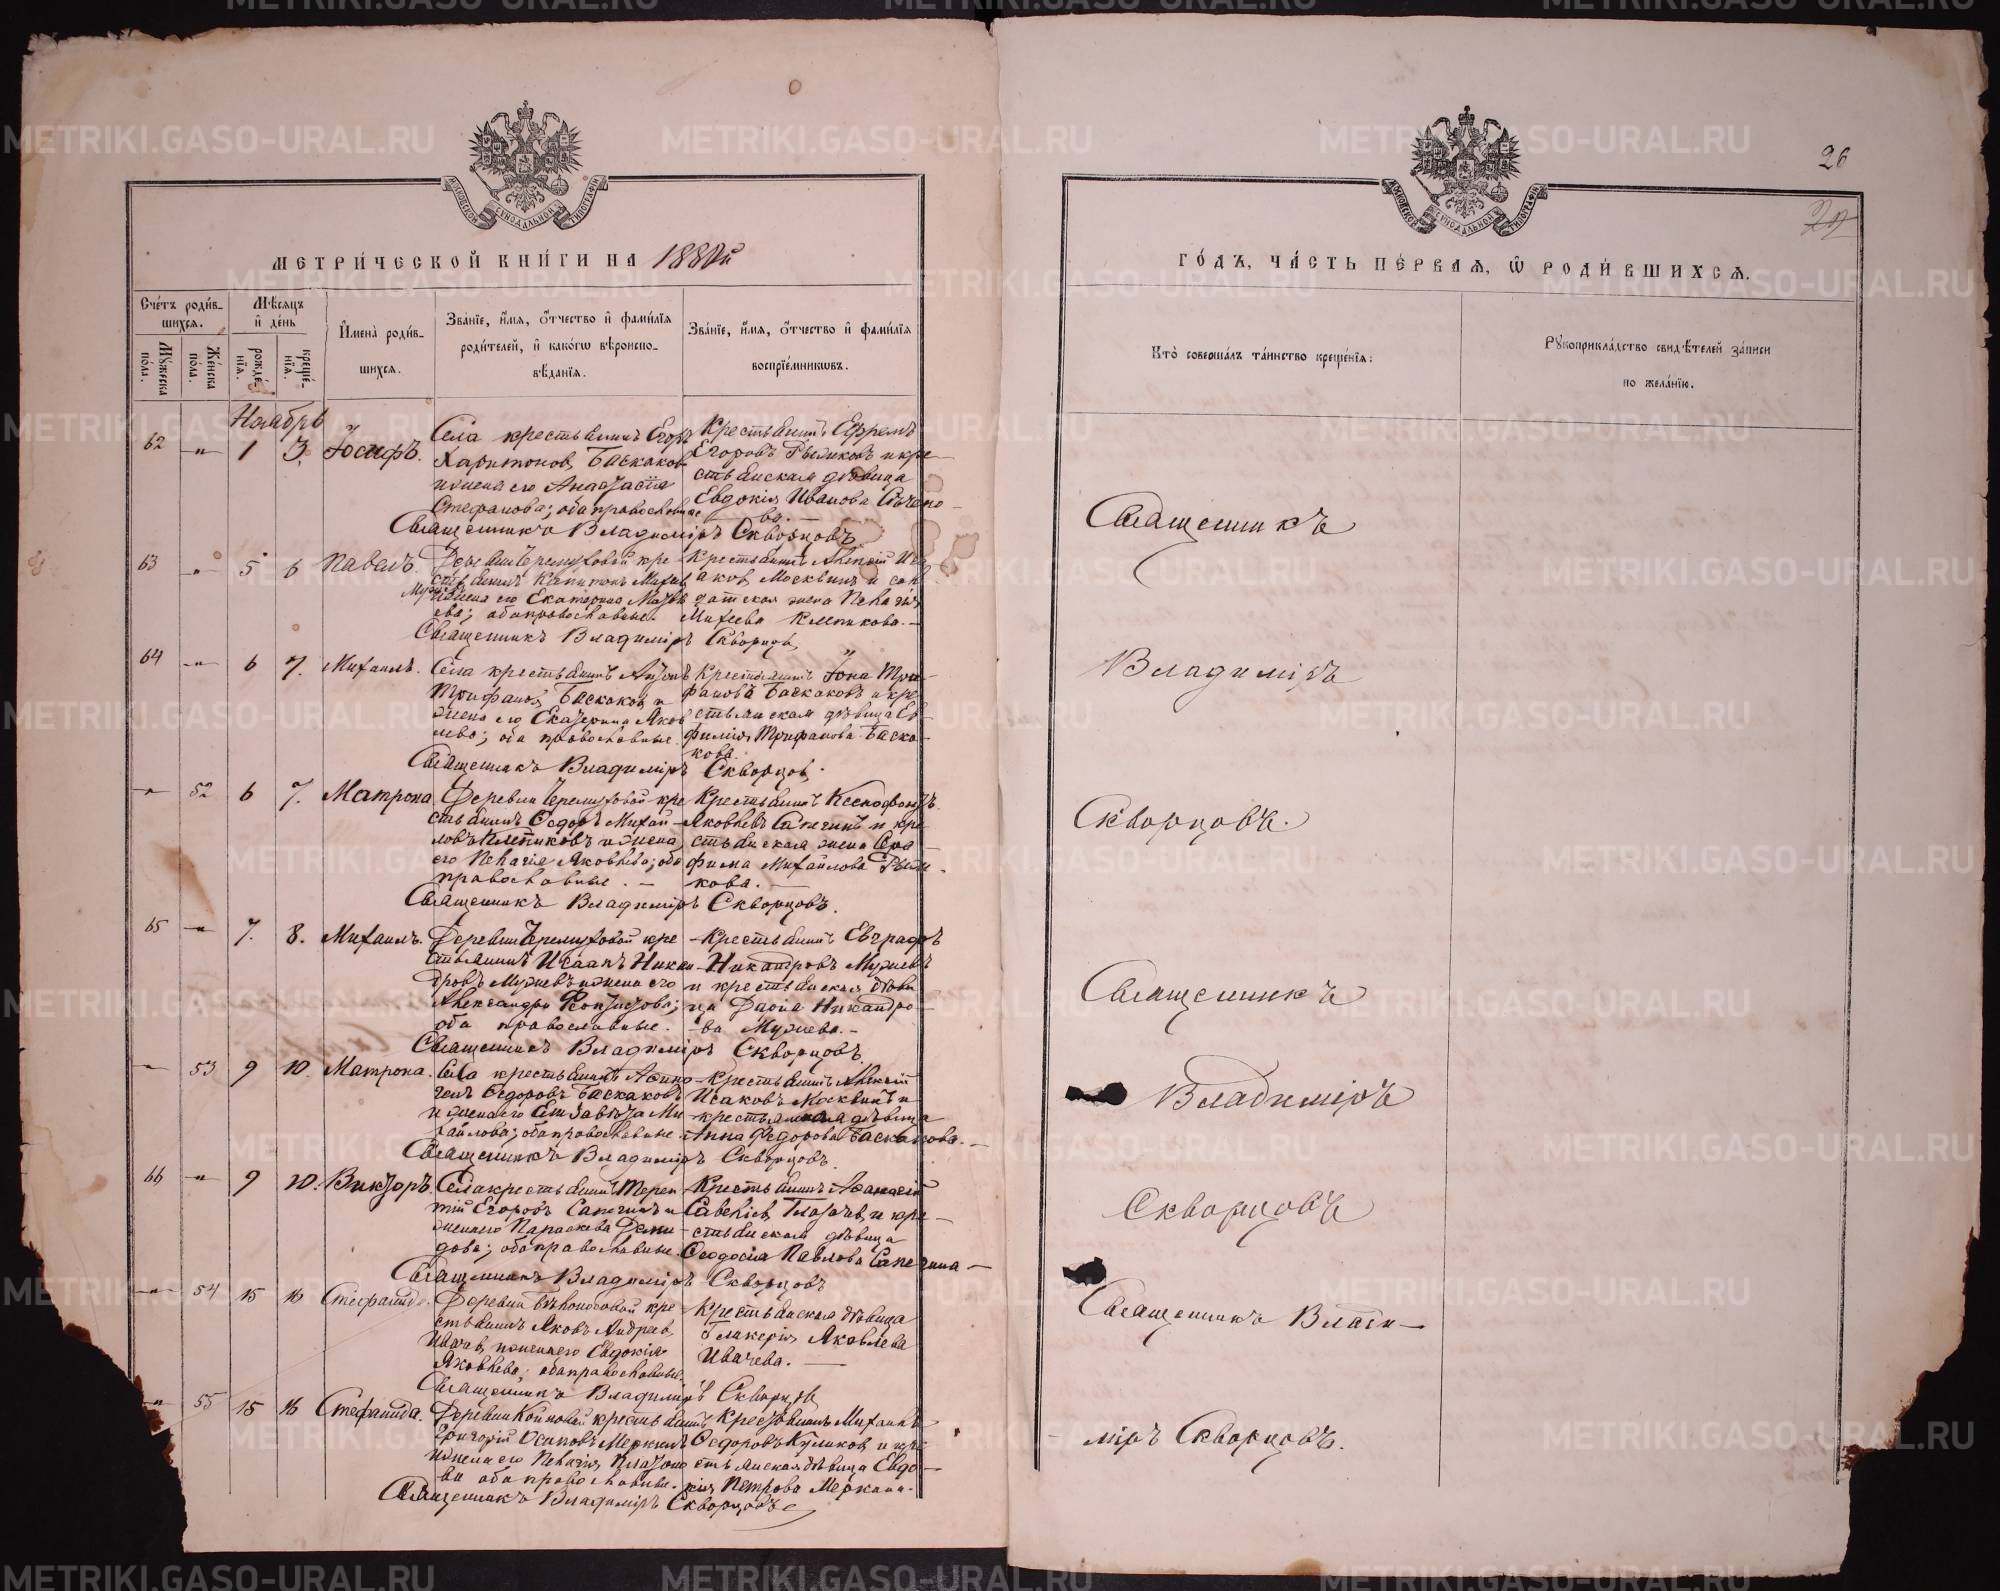 МЕТРИ́ЧЕСКОЙ КНИ́ГИ НА 1880й
Сче́тъ роди́в-
шихся.
Мѣсяцъ
и҆ де́нь
Мꙋжеска
по́ла.
Же́нска
по́ла.
рожде́-
нїѧ.
креще́-
нїѧ.
И҆мена̀ роди́в-
шихсѧ.
Зва́нїе, и҆́мѧ, ѻ҆́тчество и҆ фами́лїѧ
роди́телей, и҆ како́гѡ вѣроиспо-
вѣ́данїѧ.
Зва́нїе, и҆́мѧ, ѻ҆́тчество и҆ фами́лїѧ
воспрїе́мникѡвъ.
Ноябрь
62 -„- 1 3. Іосифъ.
Села крестьянинъ Егоръ
Харитоновъ Баскаковъ
и жена его Анастасія
Стефанова; оба православные
Крестьянинъ Ефремъ
Егоровъ и кре-
стьянская дѣвица
Евдокія Иванова
Священникъ Владиміръ Скворцовъ.
63 -„- 5 6 Павелъ.
Деревни Черемуховой кре-
стьянинъ Капитонъ
и жена его Екатерина
оба православные.
Крестьянинъ Алексій Иса-
аковъ Москвинъ и сол-
датская жена Пелагія
Михеева Клепикова.-
Священникъ Владиміръ Скворцовъ
64 -„- 6 7. Михаилъ.
Села крестьянинъ
Трифановъ Баскаковъ и
жена его Екатерина Яков-
лева; оба православные.
Крестьянинъ Іона Три-
фановъ Баскаковъ и кре-
стьянская дѣвица Ев-
фимія Трифанова Баска-
кова.
Священникъ Владиміръ Скворцовъ.
-„- 52 6 7. Матрона
Деревни Черемуховой кре-
стьянинъ Ѳеодоръ Михай-
ловъ Клепиковъ и жена
его Пелагія Яковлева; оба
православные. —
Крестьянинъ Ксенофонтъ
Яковлевъ Сапегинъ и кре-
стьянская жена Сера-
фима Михайлова
кова. —
Священникъ Владиміръ Скворцовъ.
65 -„- 7. 8. Михаилъ.
Деревни Черемуховой кре-
стьянинъ Исаакъ Никан-
дровъ Мужевъ и жена его
Александра
оба православные.
Крестьянинъ Евграфъ
Никандровъ Мужевъ
и крестьянская дѣви-
ца Дарія Никандро-
ва Мужева.-
Священникъ Владиміръ Скворцовъ.
-„- 53 9 10. Матрона.
Села крестьянинъ Асинк-
ретъ Ѳедоровъ Баскаковъ
и жена его Елизавета Ми-
хайлова; оба православные
Крестьянинъ Алексій
Исаковъ Москвинъ и
крестьянская дѣвица
Анна Федорова Баскакова.-
Священникъ Владиміръ Скворцовъ.
66 -„- 9 10. Викторъ.
Села крестьянинъ Терен-
тій Егоровъ Сапегинъ и
жена его Параскева Деми-
дова; оба православные.
Крестьянинъ Аѳанасій
Савельевъ и кре-
стьянская дѣвица
Ѳеодосія Павлова Сапегина-
Священникъ Владиміръ Скворцовъ
-„- 54 15 16 Стефанида.
Деревни Бѣлоносовой кре-
стьянинъ Яковъ Андреевъ
Ивачевъ и жена его Евдокія
Яковлева; оба православные.
Крестьянская дѣвица
Гликерія Яковлева
Ивачева. —
Священникъ Владиміръ Скворцовъ
-„- 55 15 16 Стефанида.
Деревни Койновой крестьянинъ
Григорій Осиповъ Меркинъ
и жена его Пелагія Плато-
ва оба православные.
Крестьянинъ Михаилъ
Ѳеодоровъ Куликовъ и кре-
стьянская дѣвица Евдо-
кія Петрова Меркина.
Священникъ Владиміръ Скворцовъ
26
ГО́ДЪ, ЧА́СТЬ ПЕ́РВАѦ, Ѽ РОДИ́ВШИХСѦ.
Кто̀ соверша́лъ та́инство креще́нїѧ:
Рꙋкоприкла́дство свидѣ́телей за́писи
по жела́нїю.
Священникъ
Владиміръ
Скворцовъ.
Священникъ
Владиміръ
Скворцовъ
Священникъ Влади-
міръ Скворцовъ.
METRIKI.GASO-URAL.RU